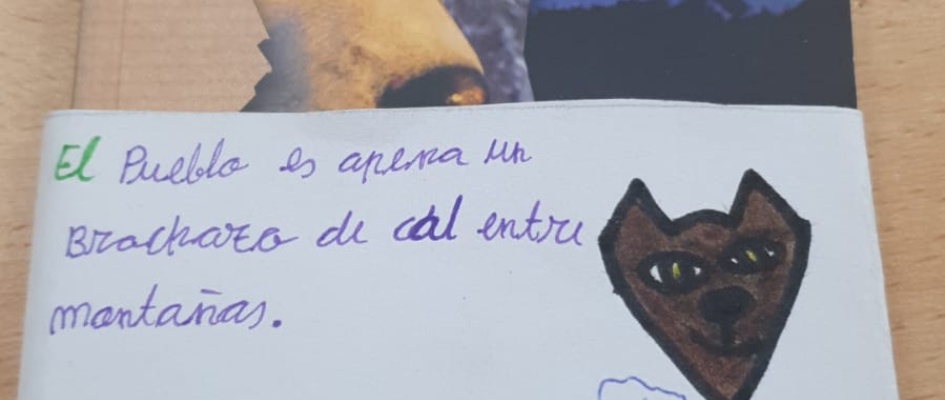 El Pueblo es apena un
Brochazo de cal entre
montañas.